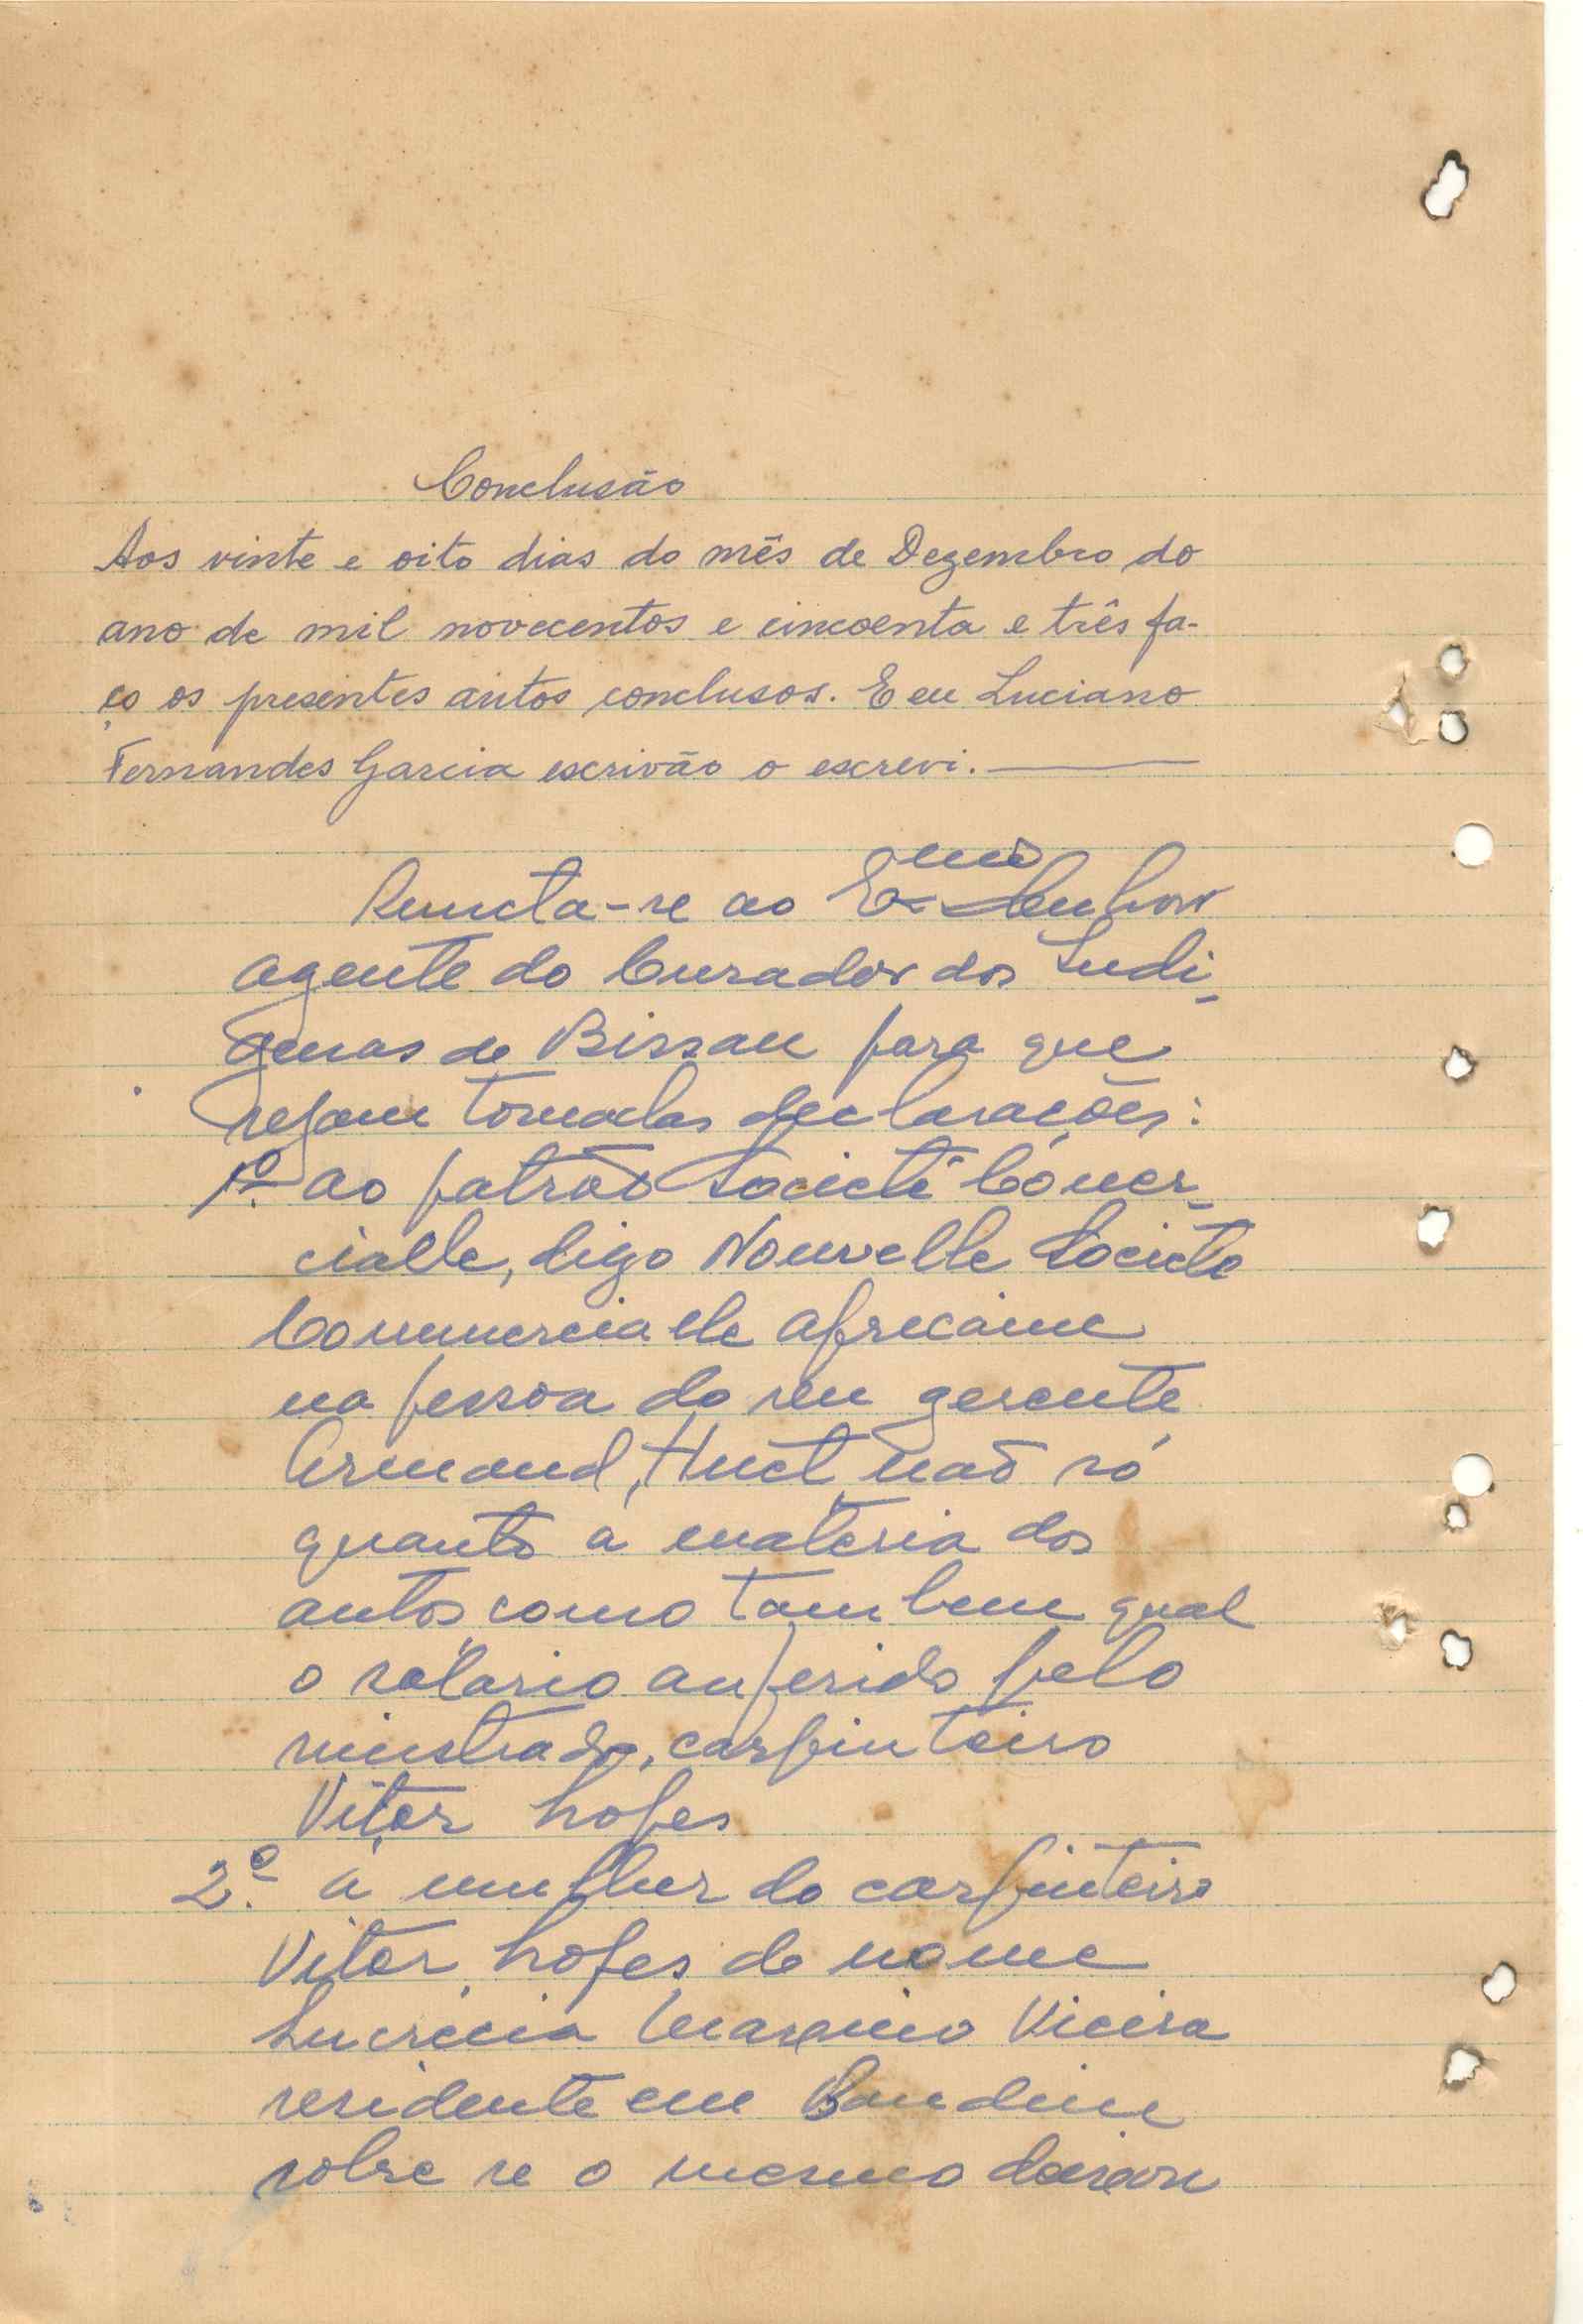 Conclusão
Aos vinte e oito dias do mês de Dezembro do
ano de mil novecentos e cincoenta e três fa-
ço os presentes autos conclusos. E eu Luciano
Fernandes Garcia escrivão o escrevi.
-se ao Exmo Senhor
agente do Curador dos Indi-
genas de Bissau para que
sejam tomadas declarações:
1º. ao patrão Societé Comer-
cialle, digo Nouvelle Societé
Commercialle Africaine
na pessoa do seu gerente
Armand Huet não só
quanto à materia dos
autos como tambem qual
o salario auferido pelo
sinistrado, carpinteiro
Vitor Lopes
2º. à mulher do carpinteiro
Vitor Lopes de nome
Lucrecia Vieira
residente em Bandim
sobre se o mesmo deixou